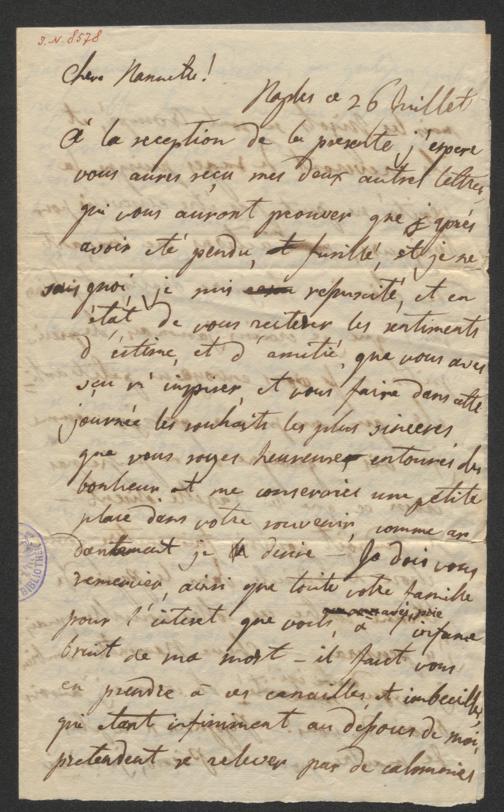 J.N. 8578
Chere Nannette!
Naples ce 26 Juillet
À la reception de la presente j'espere
vous aures reçu mes deux autres lettres,
qui vous auront prouver que j'après
avoir eté pendu, et fusillé, et je ne
sais quoi, je suis resuscité, et en
état de vous reiterer les sentiments
d'éstime, et d'amitié, que vous aves
sçu m'inspirer, et vous faire dans cette
journée les souhaits les plus sinceres
que vous soyes heureuse entourée des
bonheur et me conservies une petite
place dans votre souvenir, comme ar
dantemant je le desire — Je dois vous
remercier, ainsi que toute votre famille
pour l'interet que vous à l'infame
bruit de ma mort — il faut vous
en prendre à ces canailles et imbecilles
qui etant infiniment au dessous de moi,
pretendent se relever par de calomnies
BIBLIOTHEK